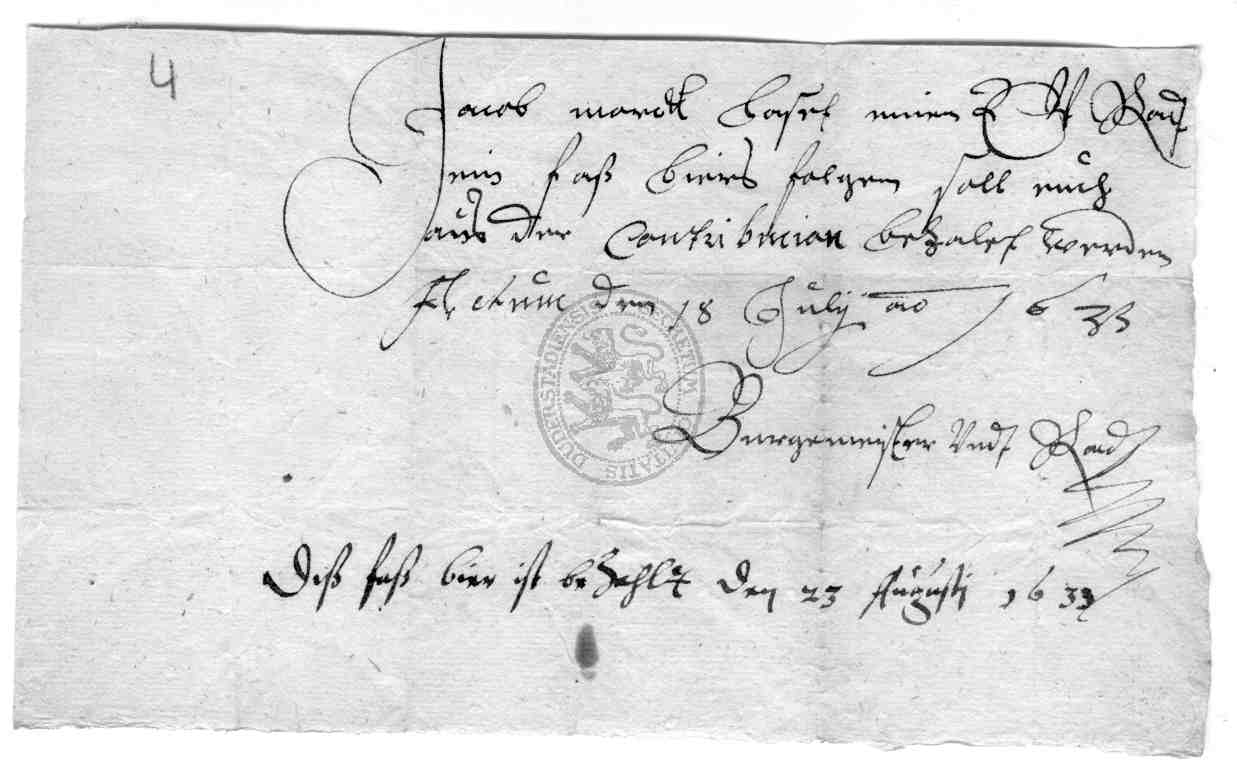 4
Jacob marckt laset einen E W Radt
ein faß biers folgen soll euch
aus der Contribucion bezalet werden
Actum den 18 July ao 1633
Burgemeister Vndt Radt
Diß faß bier ist bezahlt den 23 Augusti 1633